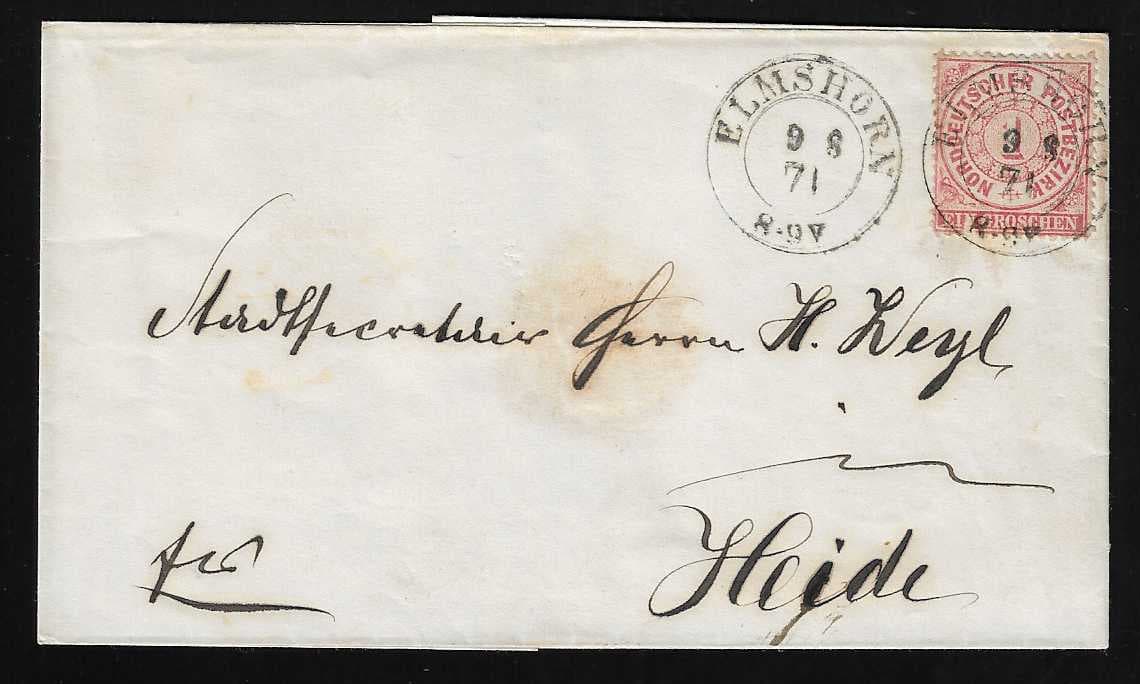 ELMSHORN
9 8
71
8-9V
NORDDEUTSCHER POSTBEZIRK
1
EIN GROSCHEN
ELMSHORN
9 8
71
8-9V
Stadtsecretair Herrn H. Weyl
in
Heide